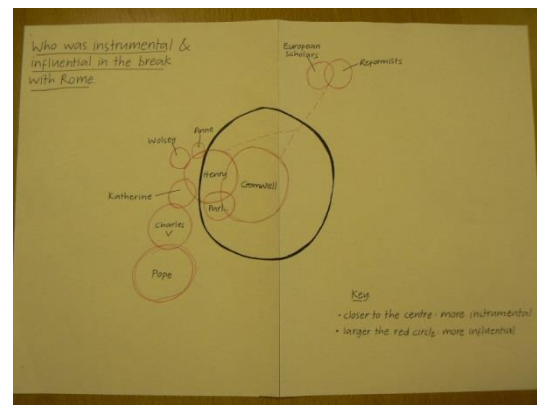 Who was instrumental &
influential in the break
with Rome.
European
Scholars
Reformists
Anne
Wolsey
Henry
Cromwell
Katherine
Parl.
Charles
V
Pope
Key
• closer to the centre: more instrumental
• larger the red circle: more influential